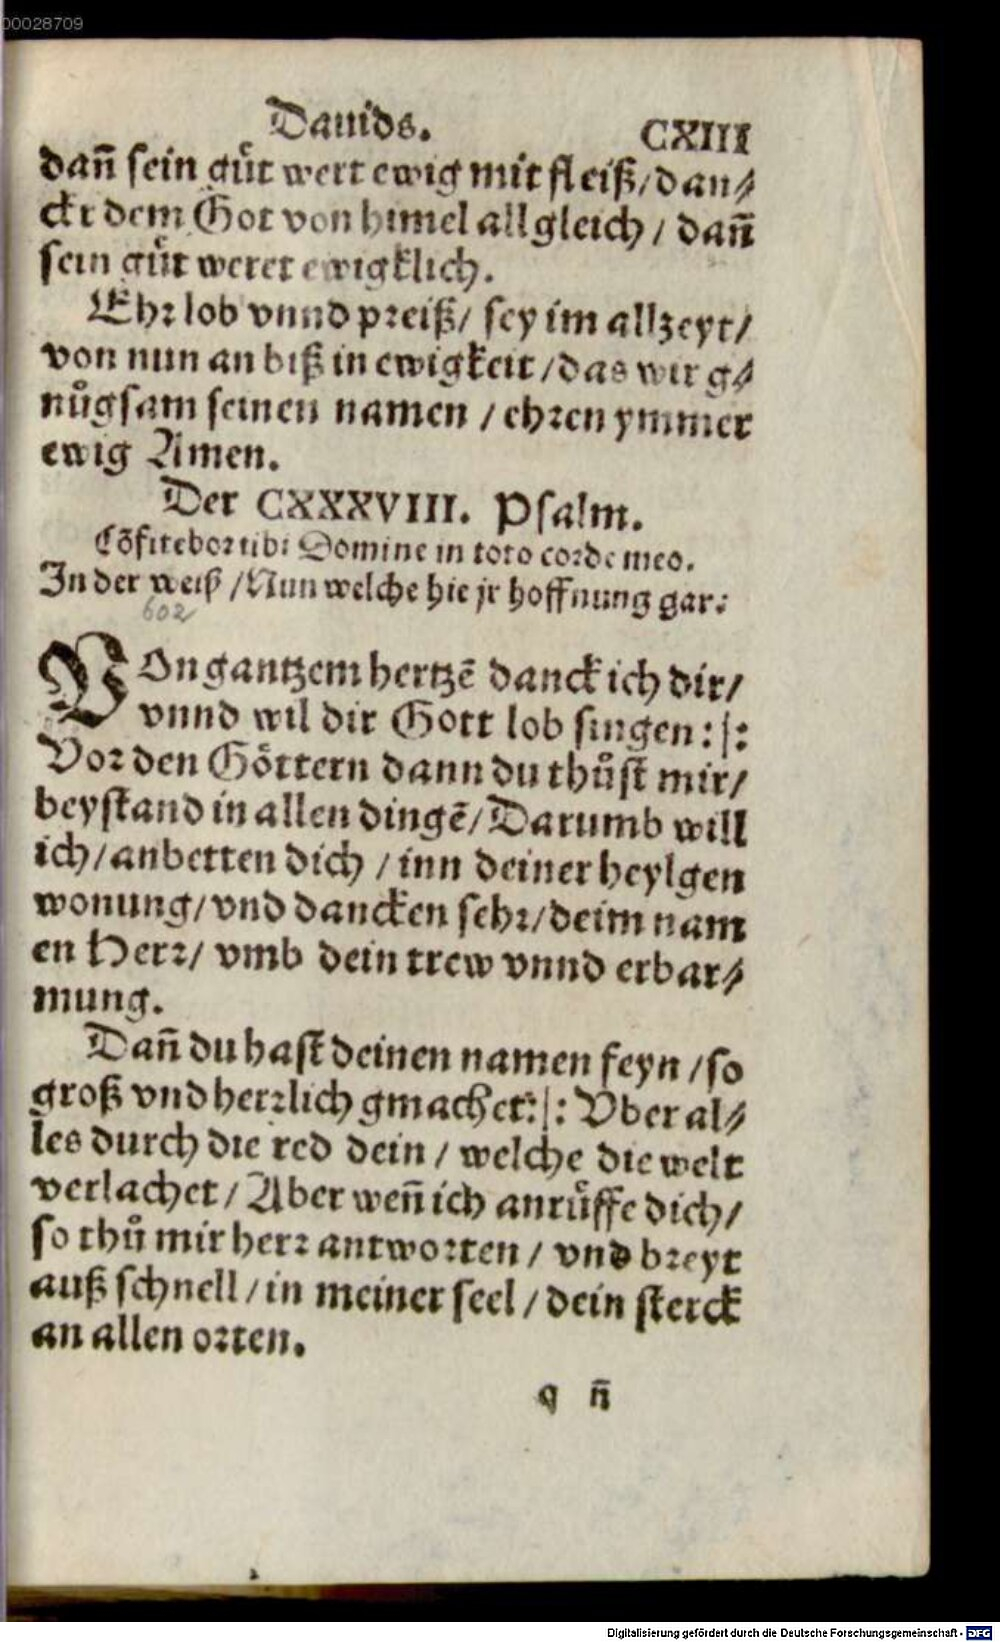 00028709
Dauids. CXIII
dañ sein guͤt wert ewig mit fleiß/dan⸗
ckt dem Got von himel all gleich / dañ
sein guͤt weret ewigklich.
Ehꝛ lob vnnd pꝛeiß/ sey im allzeyt/
von nun an biß in ewigkeit/das wir g⸗
nuͦgsam seinen namen / ehꝛen ymmer
ewig Amen.
Der CXXXVIII. Psalm.
Cõfitebor tibi Domine in toto coꝛde meo.
In der weiß /Nun welche hie jr hoffnung gar:
602
VOn gantzem hertzẽ danck ich dir/
vnnd wil dir Gott lob singen:|:
Voꝛ den Goͤttern dann du thuͦst mir/
beystand in allen dingẽ/Darumb will
ich/anbetten dich / inn deiner heylgen
wonung/vnd dancken sehꝛ/deim nam
en Herꝛ/ vmb dein trew vnnd erbar⸗
mung.
Dañ du hast deinen namen feyn /so
groß vnd herꝛlich gmachet:|: Vber al⸗
les durch die red dein / welche die welt
verlachet / Aber weñ ich anruͤffe dich/
so thuͦ mir herꝛ antwoꝛten / vnd bꝛeyt
auß schnell /in meiner seel / dein sterck
an allen oꝛten.
q ñ
Digitalisierung gefördert durch die Deutsche Forschungsgemeinschaft - DFG